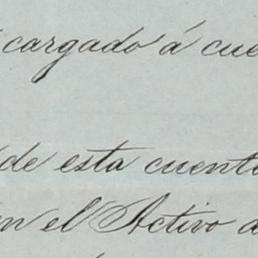 cargado á cue
de esta cuenta
en el Activo d